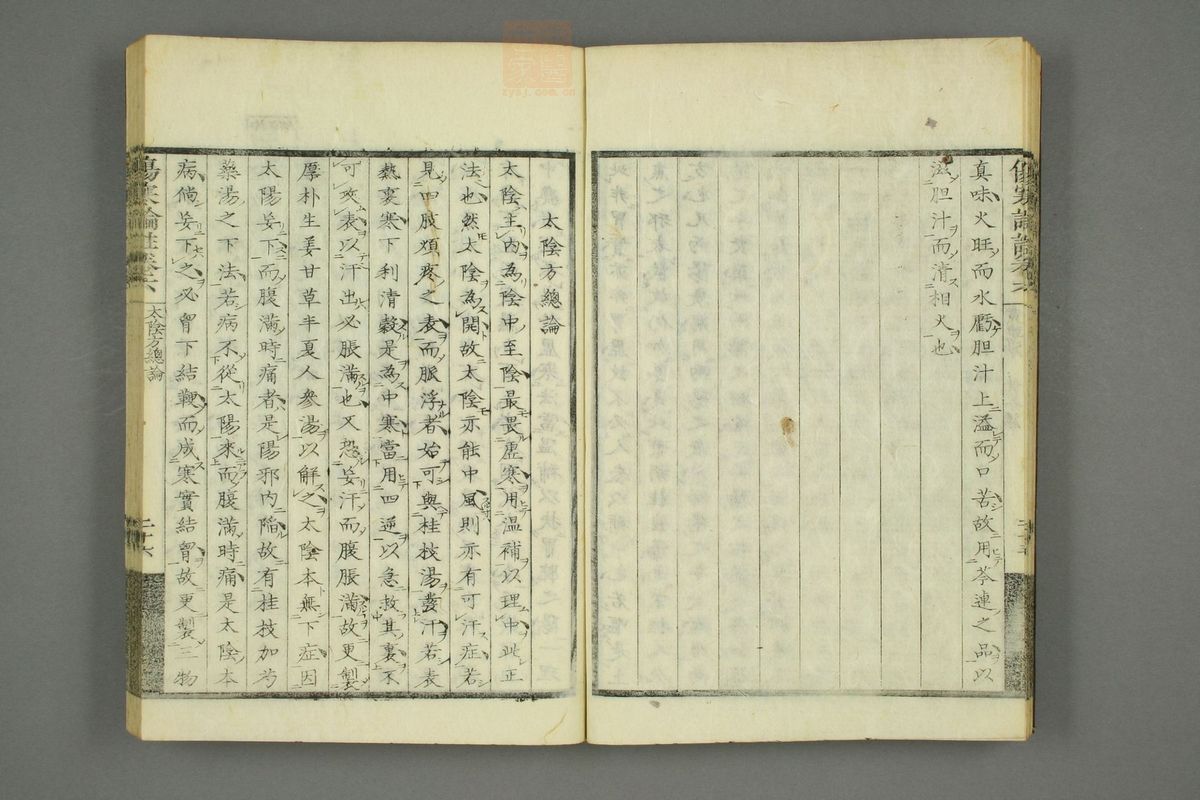 真味火旺而水虧胆汁上溢而口苦故用芩連之品以
滋胆汁而清相火也
太陰方總論
太陰主內為陰中至陰最畏虛寒用温補以理中此正
法也然太陰為開故太陰亦能中風則亦有可汗症若
見四肢煩疼之表而脈浮者始可與桂枝湯發汗若表
熱裏寒下利清穀是為中寒當用四逆以急救其裏不
可攻表以汗出必脹滿也又恐妄汗而腹脹滿故更製
厚朴生姜甘草半夏人參湯以解之太陰本無下症因
太陽妄下而腹滿時痛者是陽邪內陥故有桂枝加芍
藥湯之下法若病不從太陽來而腹滿時痛是太陰本
病倘妄下之必胷下結鞕而成寒實結胷故更製三物
傷寒論註卷六
太陰方總論
二十六
zysj.com.cn